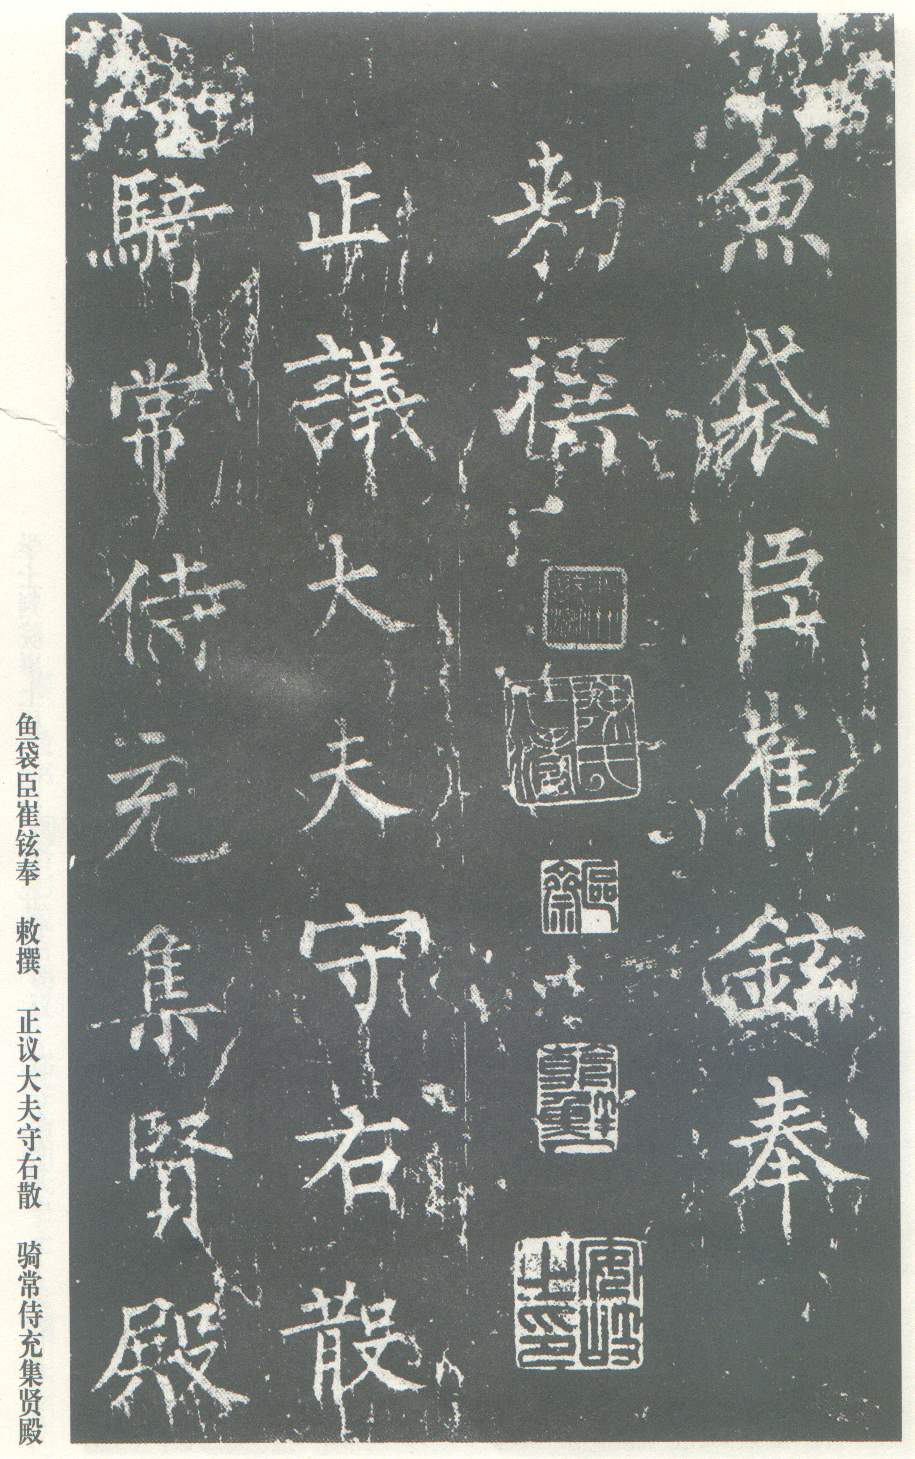 魚袋臣崔鉉奉
敕撰
正議大夫守右散
騎常侍充集賢殿
鱼袋臣崔铉奉 敕撰 正议大夫守右散 骑常侍充集贤殿